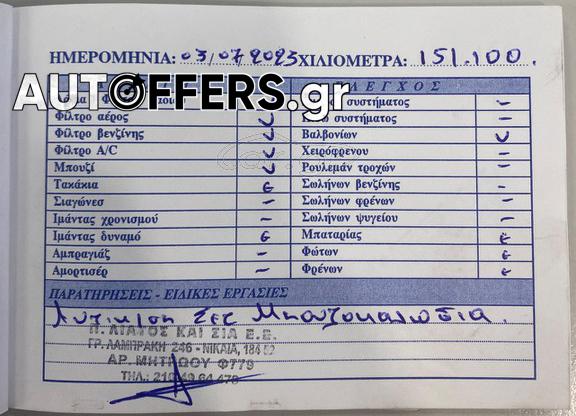 ΗΜΕΡΟΜΗΝΙΑ: 03/07/2023 ΧΙΛΙΟΜΕΤΡΑ: 151.100.
AUTOFFERS.gr
ΛΕΓΧΟΣ
συστήματος
Φίλτρο αέρος
συστήματος
Φίλτρο βενζίνης
Βαλβονίων
Φίλτρο A/C
Χειρόφρενου
Μπουζί
Ρουλεμάν τροχών
Τακάκια
Σωλήνων βενζίνης
Σιαγώνες
Σωλήνων φρένων
Ιμάντας χρονισμού
Σωλήνων ψυγείου
Ιμάντας δυναμό
Μπαταρίας
Αμπραγιάζ
Φώτων
Αμορτισέρ
Φρένων
ΠΑΡΑΤΗΡΗΣΕΙΣ - ΕΙΔΙΚΕΣ ΕΡΓΑΣΙΕΣ
Σετ Μπουζοκαλώδια.
Π. ΛΙΑΤΟΣ ΚΑΙ ΣΙΑ Ε.Ε.
ΓΡ. ΛΑΜΠΡΑΚΗ 246 - ΝΙΚΑΙΑ, 184 52
ΑΡ. ΜΗΤΡΩΟΥ Φ779
ΤΗΛ.: 210 49 64 478